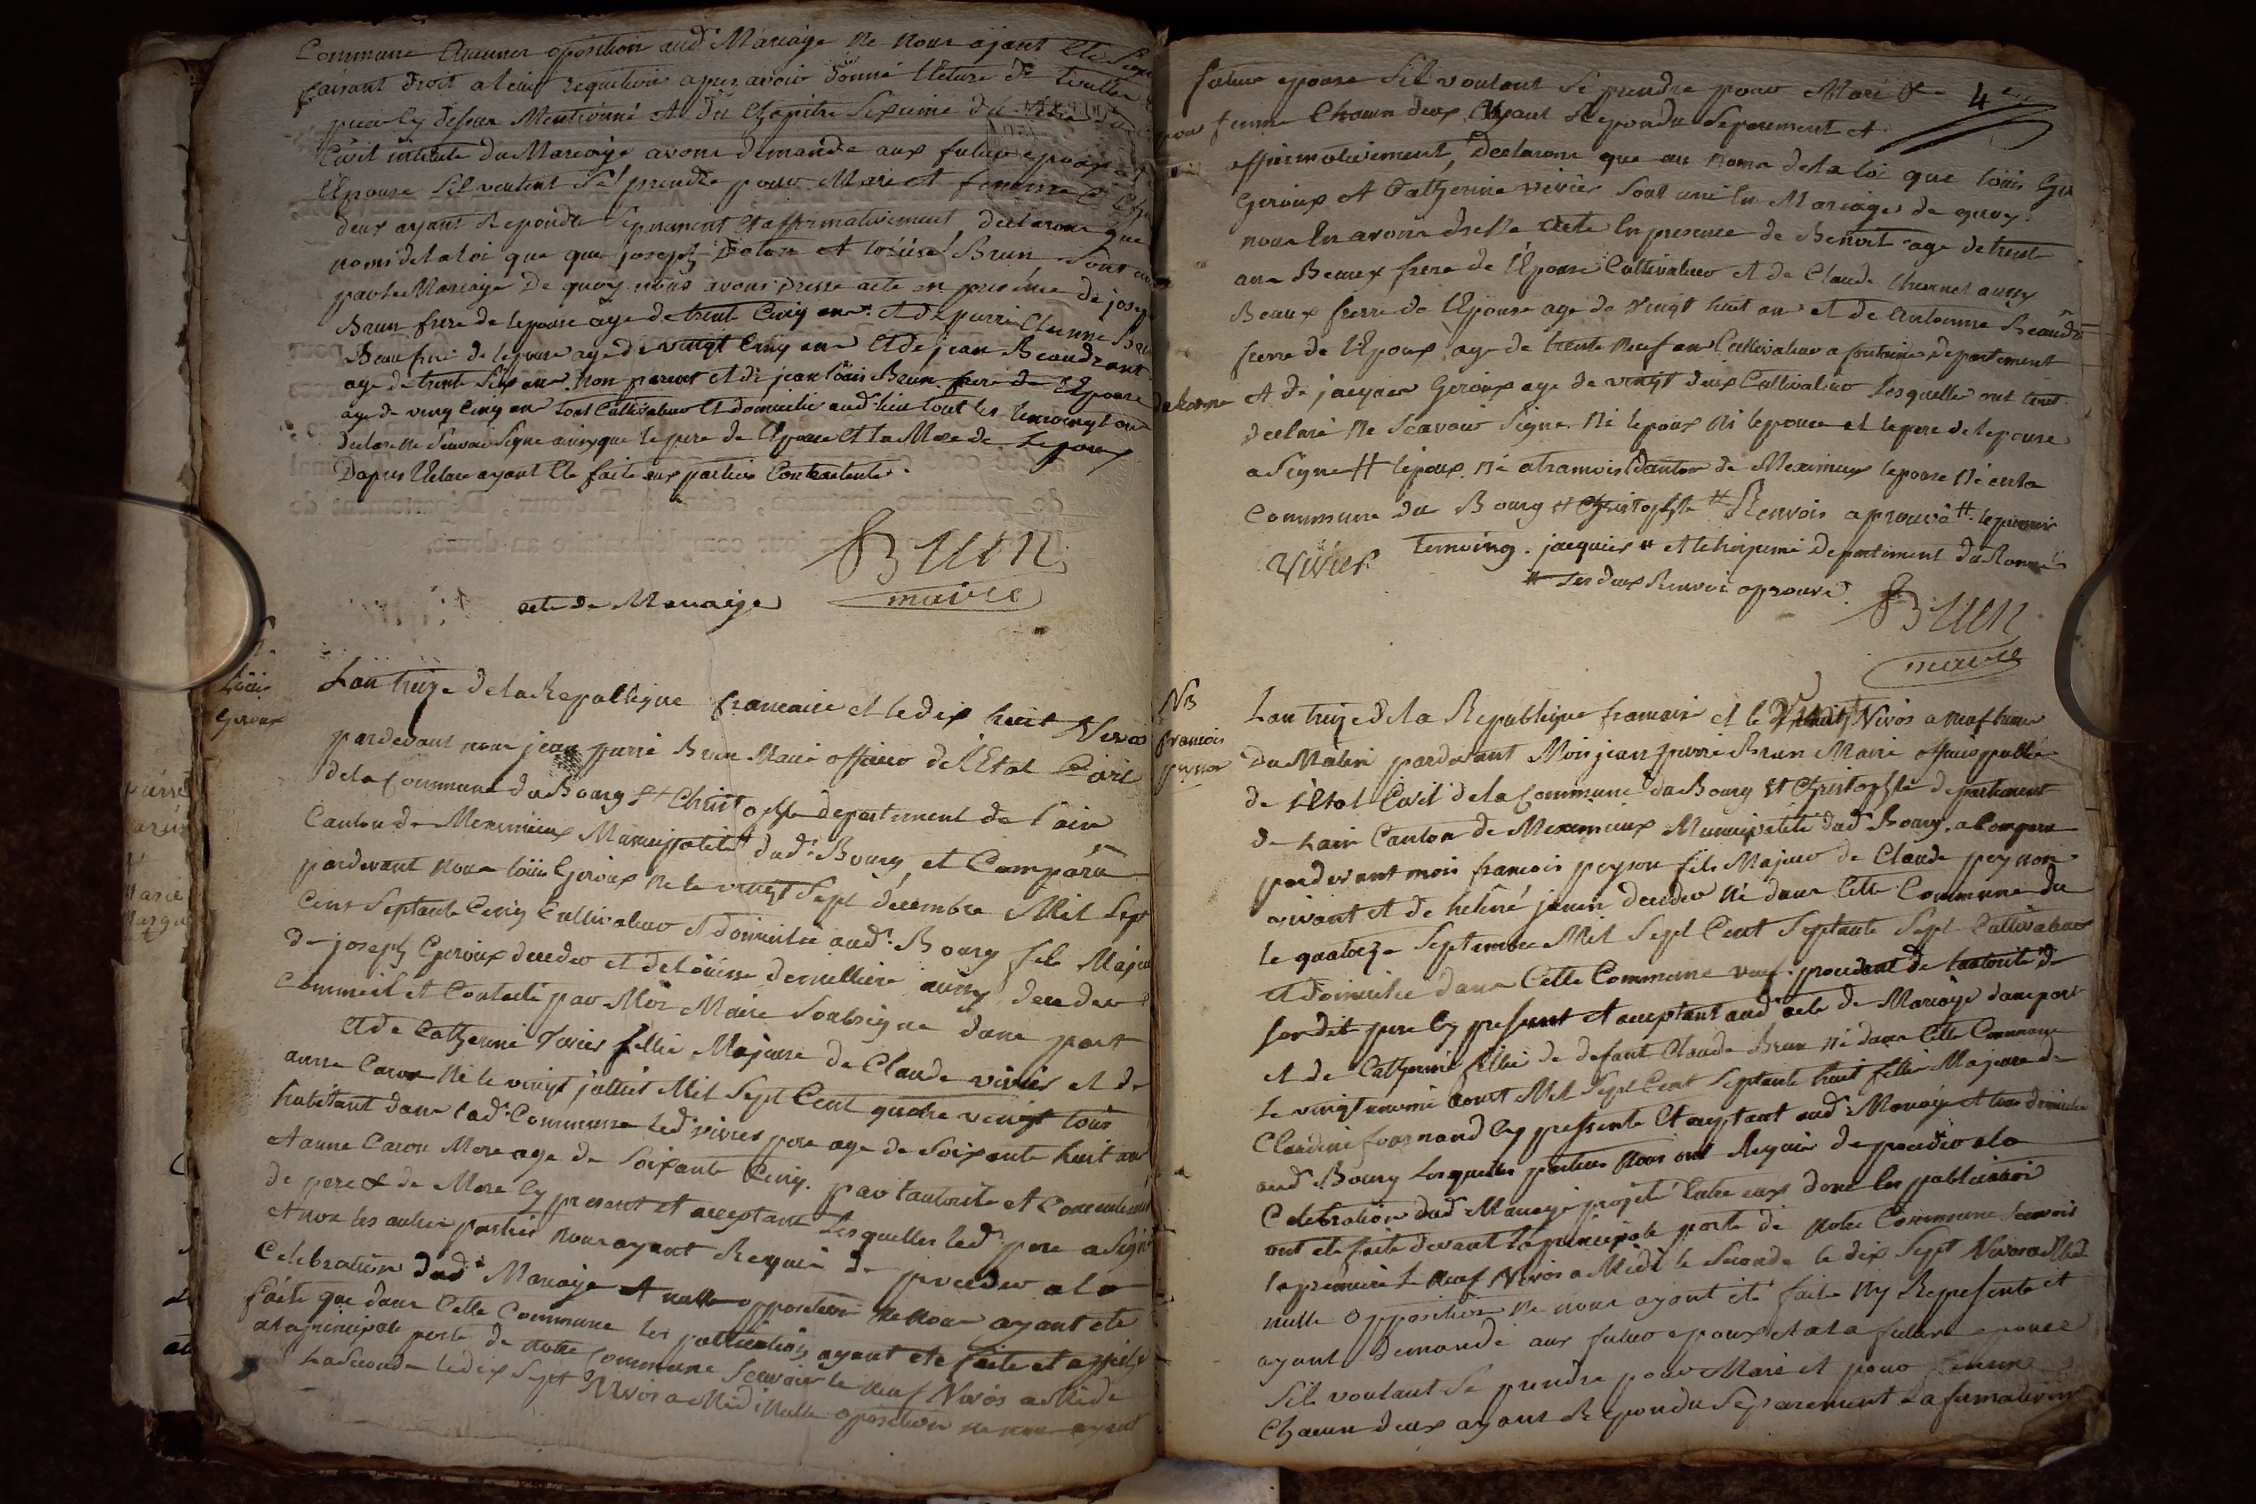 Commune Aucunes oposition aud.t Mariage Ne Nous ayant Ete
faisant droit a leur requisition apres avoir donné lecture de toutte
piece Cy dessus Mentionné et du Chapitre Sixieme du
Civil intitulé du Mariage avons demandé aux futur epoux et
Epouse Sil veulent Se prendre pour Mari et femme
deux ayant Repondu Separement et affirmativement, declarons que
nom de la loi que que joseph et loüise Brun Sont
par le Mariage De quoy nous avons dresse acte en presence de joseph
Brun frere de lepouse age de trente Cinq ans et de pierre
Beau frere de lepouse age de vingt Cinq ans Et de jean Beaudrant
age de trente Six ans non parent et de jean loüis Brun frere de l'Epouse
age de vingt Cinq ans tous Cultivateur et domicilie aud.t lieu tout les temoings ont
declare ne Scavoir Signe ainsy que le pere de l'Epouse et la Mere de Lepoux
Dapres l'Ecture ayant Ete faite aux parties Contractantes
BRUN
maire
acte de Mariage
Loüis
Geroux
Lan treize de la Republique francaise et le dix huit Nivos
pardevant nous jean pierre Brun Maire officier de l'Etat Civil
de la Commune du Bourg St Christophe departement de l'ain
Canton de Meximieux Municipalité dud.t Bourg, et Comparu
pardevant nous loüis Geroux Né le vingt Sept décembre Mil Sept
Cent Septante Cinq Cultivateur et domicilie aud.t Bourg fils Majeur
de joseph Geroux decedé et de loüise aussy decedee
Comme il et Constaté par Moi Maire Soubsigne dune part
Et de Catherine Vivier fillie Majeure de Claude vivier et de
anne Caron Né le vingt juilliet Mil Sept Cent quatre vingt tous
habitant dans lad.t Commune led.t vivier pere age de Soixante huit ans
et anne Caron Mere age de Soixante Cinq. par lautorité et Consentement
de pere & de Mere Cy present et acceptant Lesquelles led.t pere a Signé
et non les autres parties nous ayant Requis de proceder a la
Celebration dud.t Mariage et nulle opposition ne nous ayant été
faite que dans Cette Commune les publications ayant été faite et affiché
a la principale porte de notre Commune Scavoir le neuf Nivos a Midi
La Seconde le dix Sept Nivos a Midi Nulle oposition ne nous ayant
4
future epouse Sil voulant Se prendre pour Mari &
pour femme Chacun deux, Ayant Repondu Separement et
affirmativement, Declarons que au nom de la loi que loüis
Geroux et Catherine vivier Sont uni En Mariage de quoy
nous En avons dresse acte En presence de Benoit age de trente
ans Beaux frere de l'Epouse Cultivateur et de Claude aussy
Beaux frere de l'Epouse age de vingt huit an et de Antoinne
frere de l'Epoux, age de trente neuf an Cultivateur a fontaine departement
et de jacques Geroux age de vingt deux Cultivateur Lesquelles ont tous
declaré Ne Scavoir Signe. Ni lepoux Ni lepouse et le pere de lepouse
a Signe # lepoux né a tramois Canton de Meximieux lepouse né en la
Commune du Bourg St Christophle # Renvois aprouvé # le premier
temoing. jacquier # et le troisieme departement du Ronne
Vivier
# Les deux Renvoi aprouvé
BRUN
maire
No
francois
peyson
Lan treize de la Republique francaise et le Nivos a neuf heure
Du Matin pardevant Moi jean pierre Brun Maire officier publie
de l'Etat Civil de la Commune du Bourg St Christophle departement
de Lain Canton de Meximieux Municipalité dud.t Bourg. a Comparu
pardevant moi francois peyson fils Majeur de Claude peyson
vivant et de helené janin decedée Né dans Cette Commune du
le quatorze Septembre Mil Sept Cent Septante Sept Cultivateur
et domicilie dans Cette Commune procedant de lautorité de
Sondit pere Cy present et acceptant aud.t acte de Mariage dune part
et de Catherine fillie de defunt Claude Brun Né dans Cette Commune
le vingt aoust Mil Sept Cent Septante huit fillie Majeure de
Claudine Cy presente Et acceptant aud.t Mariage et tous domicilie
aud.t Bourg Lesquelles parties Nous ont Requis de proceder a la
Celebration dud.t Mariage projeté Entre eux donc les publication
ont été faite devant la principale porte de notre Commune Scavoir
la premiere Le neuf Nivos a Midi le Seconde le dix Sept Nivos a Midi
nulle opposition Ne nous ayant été faite Ny Represente et
ayant Demandé aux futur epoux et a la future epouse
Sil voulant Se prendre pour Mari et pour femme
Chacun deux ayant Repondu Separement & afirmativement